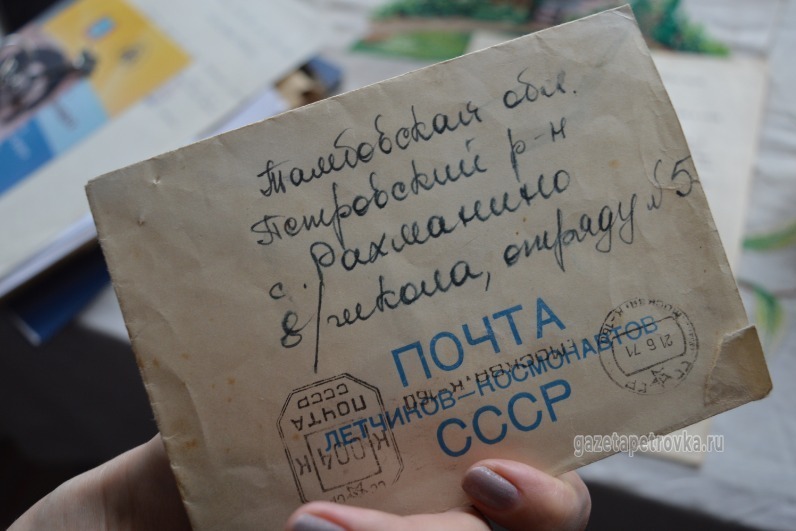 Тамбовская обл.
Петровский р-н
с. Рахманино
8/школа, отряду №5
ПОЧТА
ЛЕТЧИКОВ–КОСМОНАВТОВ
СССР
МОСКВА, К-160
ПОЧТА
СССР
К 004 К
21 6 71
gazetapetrovka.ru